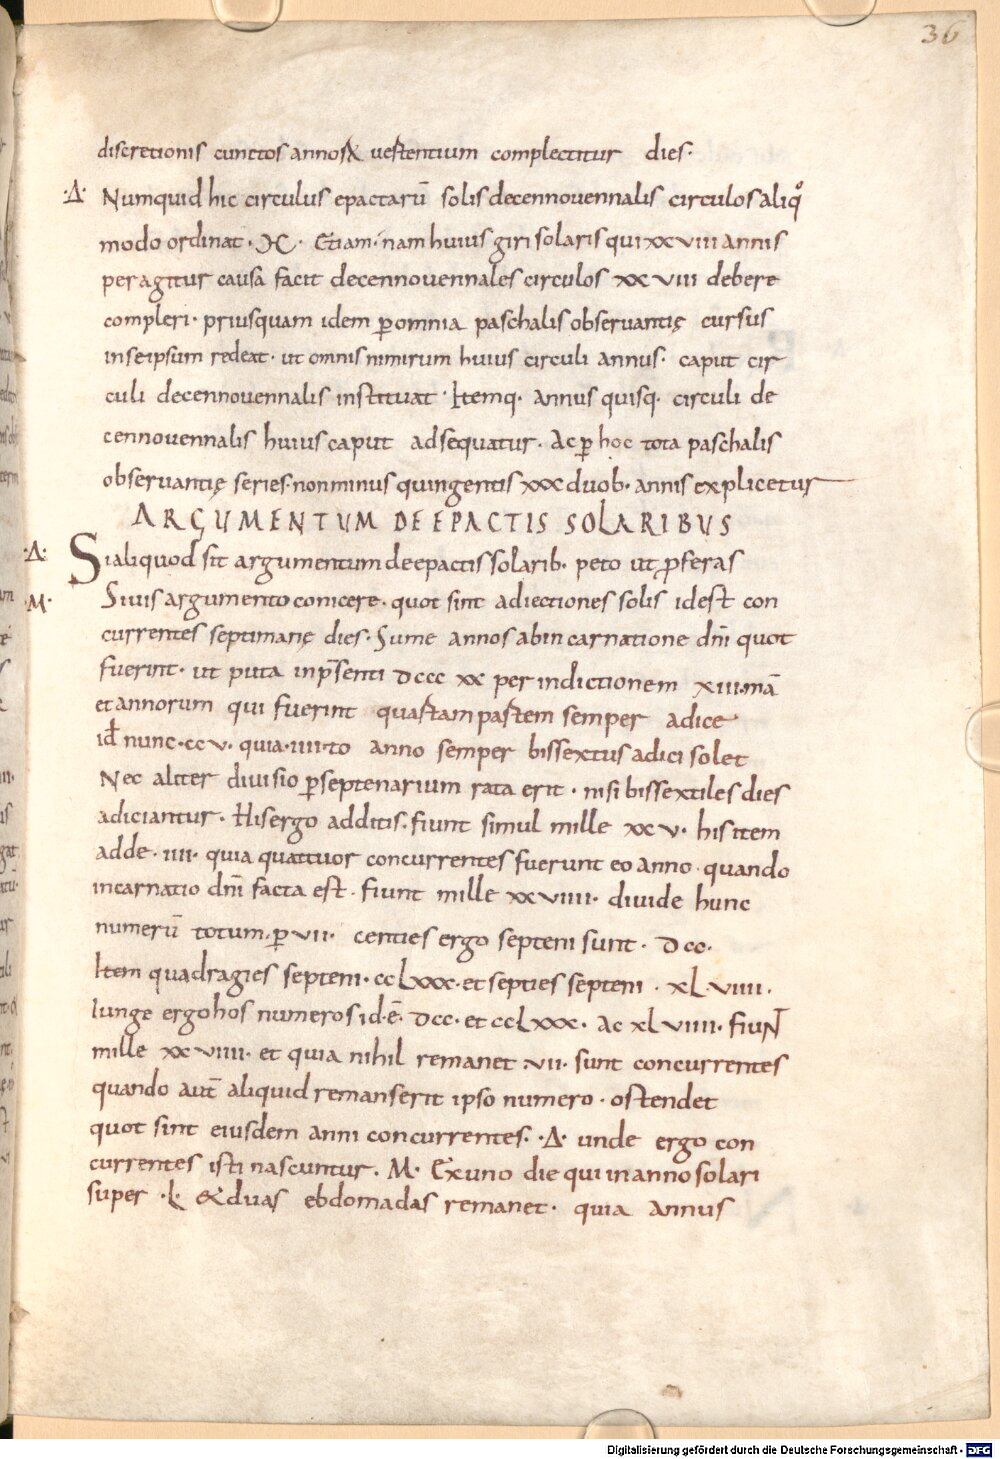 36
discretionis cunctos annos & uertentium complectitur dies·
·Δ· Numquid hic circulus epactarū solis decennouennalis circulos aliqͦ
modo ordinat· M· Etiam· nam huius giri solaris qui xxviii annis
peragitur causa facit decennouennales circulos xxviii debere
compleri· priusquam idem ꝑ omnia paschalis obseruantię cursus
in seipsum redeat· ut omnis nimirum huius circuli annus· caput cir
culi decennouennalis instituat· Itemq· annus quisq· circuli de
cennouennalis huius caput adsequatur· Ac ꝑ hoc tota paschalis
obseruantię series· non minus quingentis xxx duob· annis explicetur
ARGUMENTUM DE EPACTIS SOLARIBUS
·Δ· Si aliquod sit argumentum de epactis solarib· peto ut ꝓferas
·M· Si uis argumento conicere· quot sint adiectiones solis id est con
currentes septimanę dies· Sume annos ab incarnatione dn̄i quot
fuerint· ut puta in p̄senti dccc xx per indictionem xiii·mā
et annorum qui fuerint quartam partem semper adice
id̄ nunc· ccv· quia· iiii·to anno semper bissextus adici solet
Nec aliter diuisio ꝑ septenarium rata erit· nisi bissextiles dies
adiciantur· His ergo additis· fiunt simul mille xxv· his item
adde· iiii· quia quattuor concurrentes fuerunt eo anno· quando
incarnatio dn̄i facta est· fiunt mille xxviiii· diuide hunc
numerū totum· ꝑ vii· centies ergo septeni sunt· dcc·
Item quadragies septeni· cclxxx· et septies septeni· xlviiii·
Iunge ergo hos numeros id·ē· dcc· et cclxxx· ac xlviiii· fiuN̄
mille xxviiii· et quia nihil remanet· vii· sunt concurrentes
quando aut̄ aliquid remanserit ipso numero· ostendet
quot sint eiusdem anni concurrentes· ·Δ· unde ergo con
currentes isti nascuntur· M· Ex uno die qui in anno solari
super ·L· & duas ebdomadas remanet· quia annus
Digitalisierung gefördert durch die Deutsche Forschungsgemeinschaft - DFG